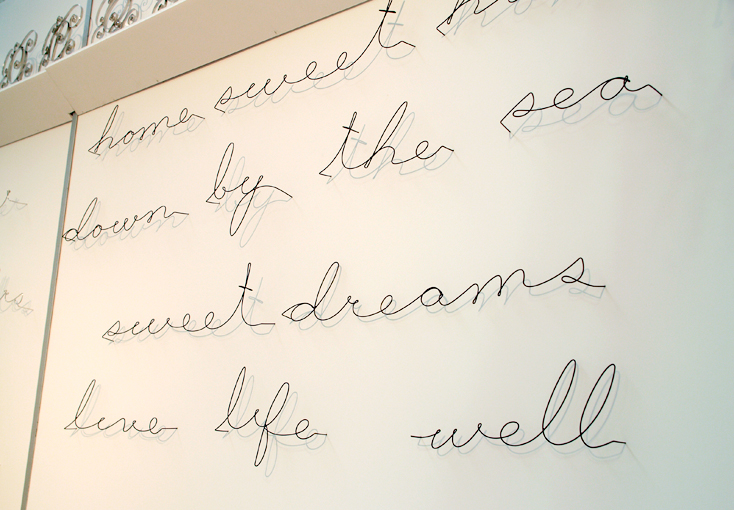 home sweet
down by the sea
sweet dreams
live life well